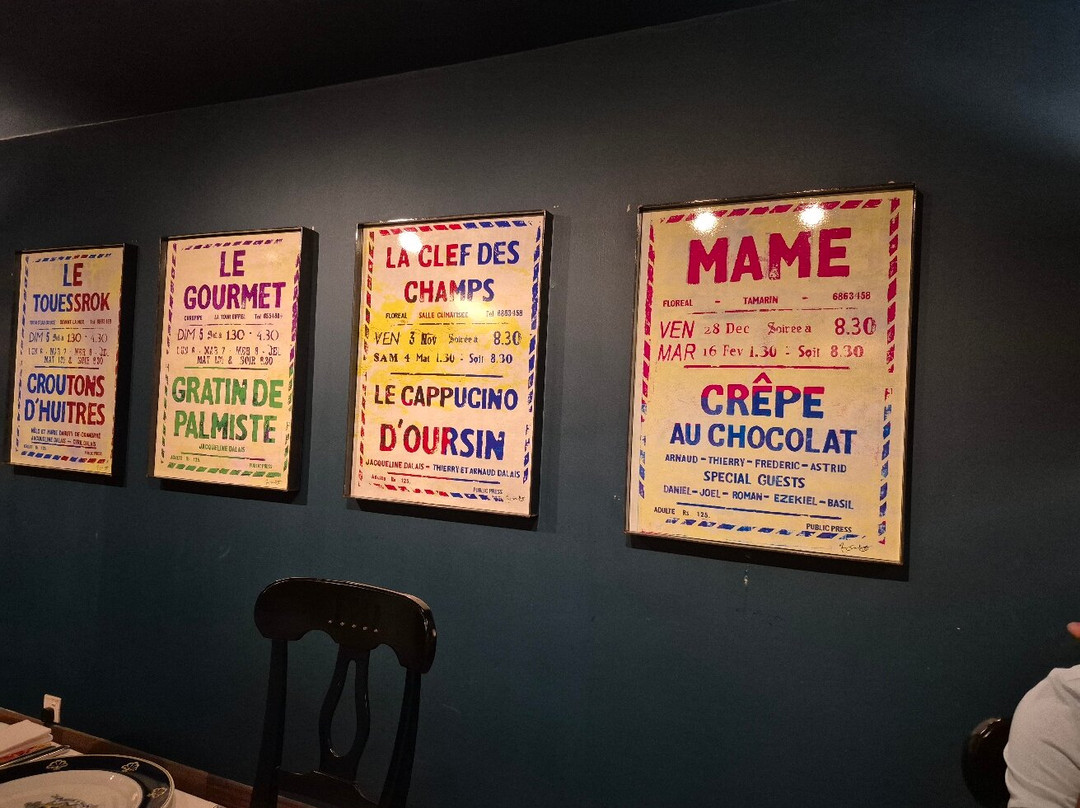 LE
TOUESSROK
DIM 5 130 - 4.30
CROUTONS
D'HUITRES
JACQUELINE DALAIS -
LE
GOURMET
CUREPIPE LA TOUR EIFFEL Tel
DIM 5 130 - 4.30
LUN 6 - MAR 7 - MER 8 - JEU
MAT 1.30 & SOIR 8.30
GRATIN DE
PALMISTE
JACQUELINE DALAIS
ADULTE Rs 125.
PUBLIC PRESS
LA CLEF DES
CHAMPS
FLOREAL SALLE CLIMATISEE Tel 6863458
VEN 3 Nov Soiree a 8.30
SAM 4 Mat 1.30 - Soir 8.30
LE CAPPUCINO
D'OURSIN
JACQUELINE DALAIS - THIERRY ET ARNAUD DALAIS
ADULTE Rs 125.
PUBLIC PRESS
MAME
FLOREAL - TAMARIN - 6863458
VEN 28 Dec Soiree a 8.30
MAR 16 Fev 1.30 - Soir 8.30
CRÊPE
AU CHOCOLAT
ARNAUD - THIERRY - FREDERIC - ASTRID
SPECIAL GUESTS
DANIEL - JOEL - ROMAN - EZEKIEL - BASIL
ADULTE Rs 125.
PUBLIC PRESS